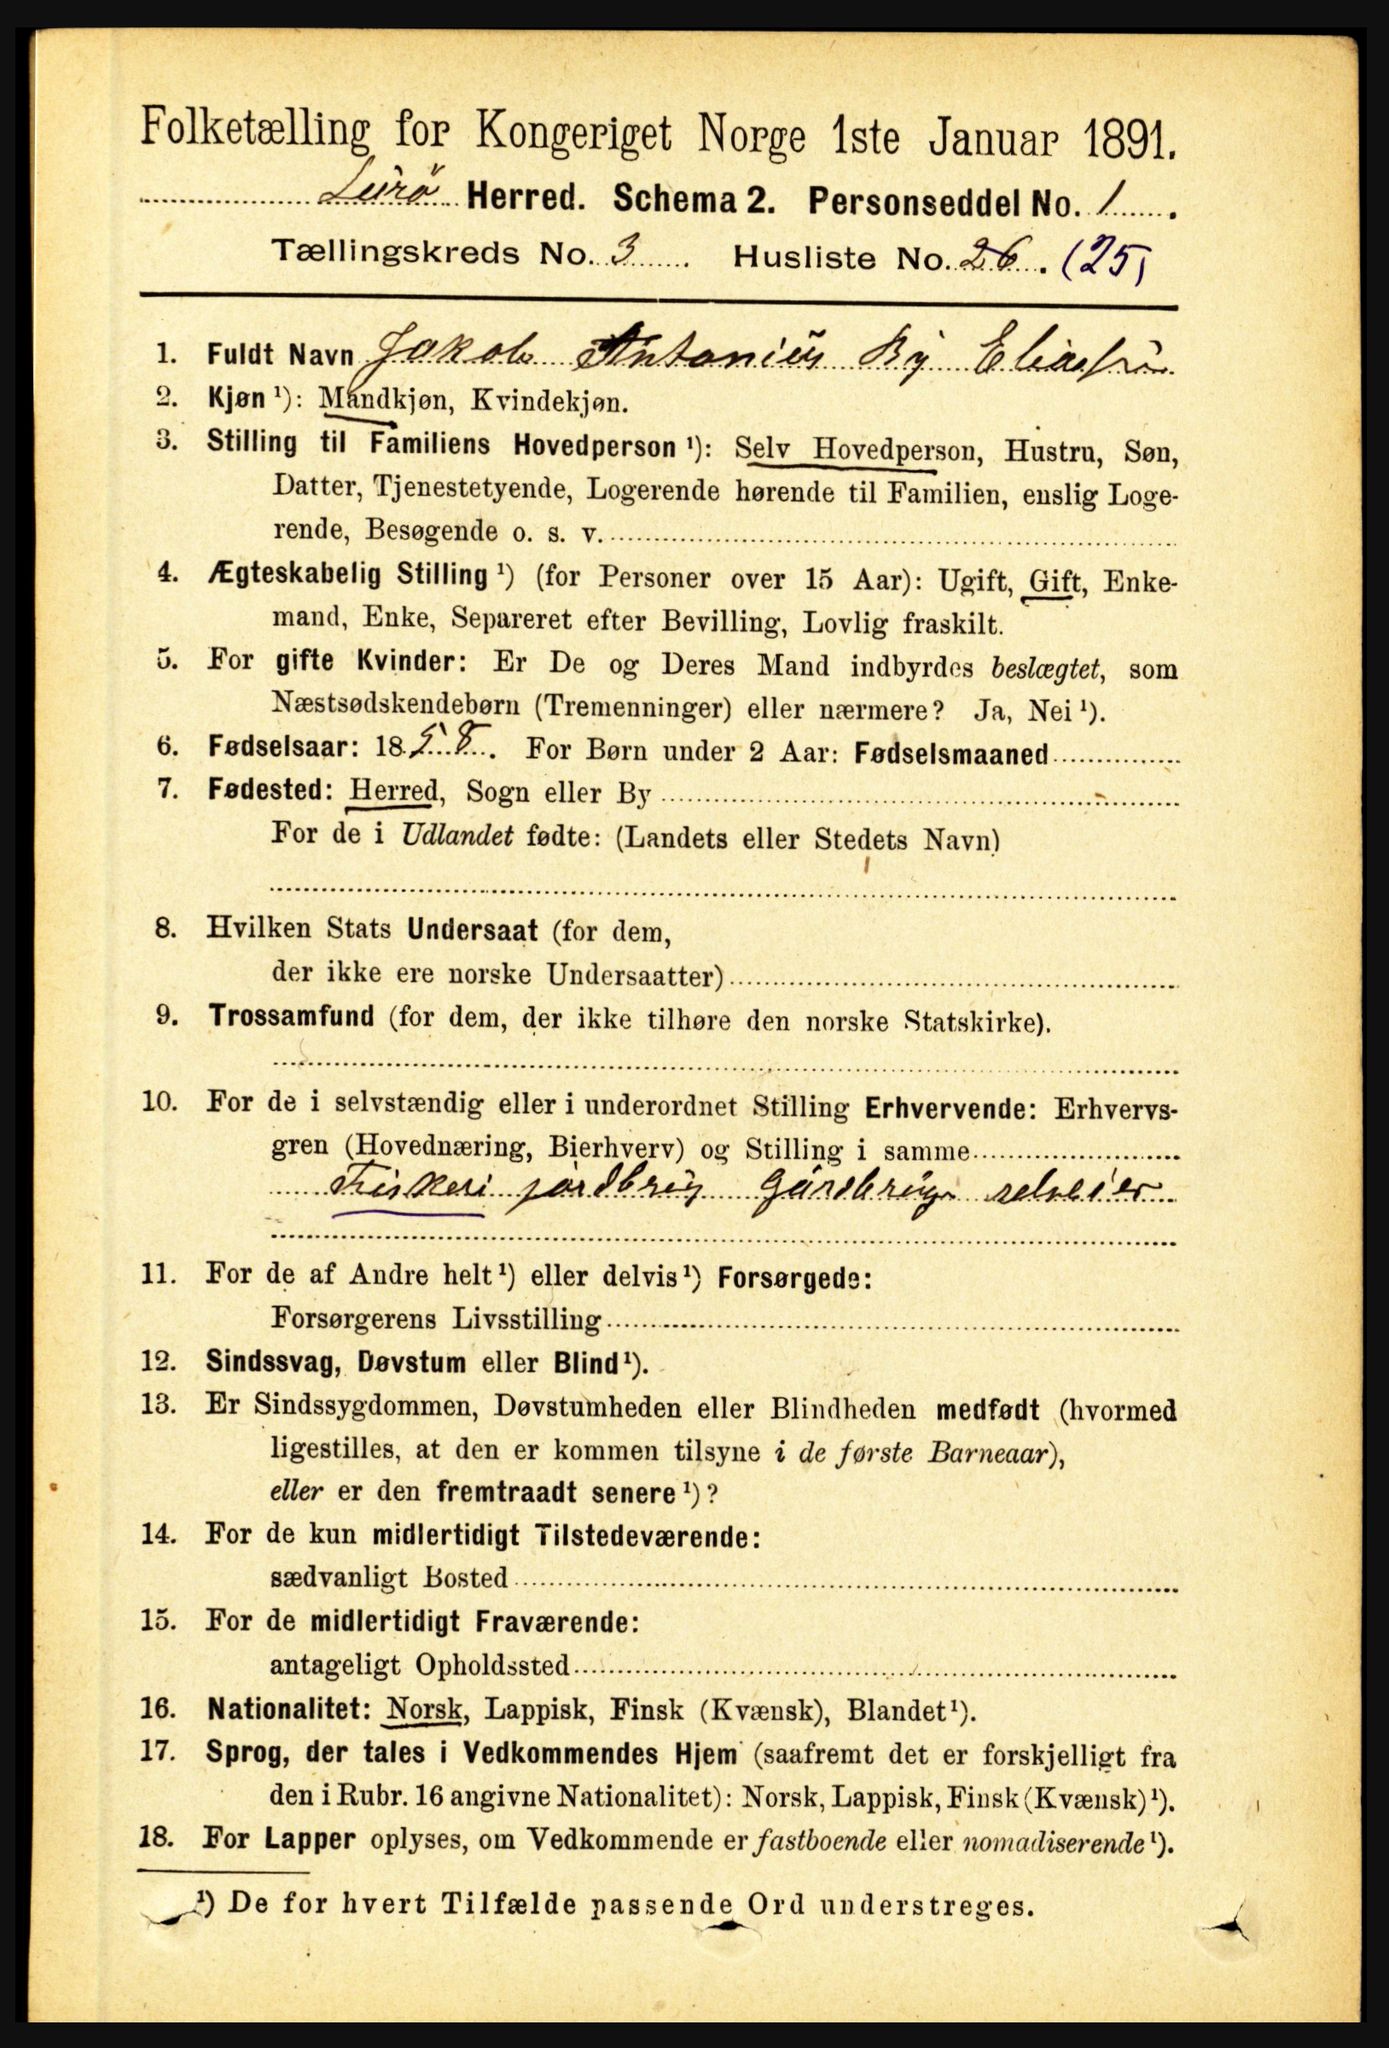 Folketælling for Kongeriget Norge 1ste Januar 1891.
Lurø Herred. Schema 2. Personseddel No. 1.
Tællingskreds No. 3 Husliste No. 26. (25)
1. Fuldt Navn Jakob Antoniüs By Eliassøn
2. Kjøn¹): Mandkjøn, Kvindekjøn.
3. Stilling til Familiens Hovedperson¹): Selv Hovedperson, Hustru, Søn,
Datter, Tjenestetyende, Logerende hørende til Familien, enslig Loge-
rende, Besøgende o. s. v.
4. Ægteskabelig Stilling¹) (for Personer over 15 Aar): Ugift, Gift, Enke-
mand, Enke, Separeret efter Bevilling, Lovlig fraskilt.
5. For gifte Kvinder: Er De og Deres Mand indbyrdes beslægtet, som
Næstsødskendebørn (Tremenninger) eller nærmere? Ja, Nei¹).
6. Fødselsaar: 1858. For Børn under 2 Aar: Fødselsmaaned
7. Fødested: Herred, Sogn eller By
For de i Udlandet fødte: (Landets eller Stedets Navn)
8. Hvilken Stats Undersaat (for dem,
der ikke ere norske Undersaatter)
9. Trossamfund (for dem, der ikke tilhøre den norske Statskirke).
10. For de i selvstændig eller i underordnet Stilling Erhvervende: Erhvervs-
gren (Hovednæring, Bierhverv) og Stilling i samme
Fiskeri jordbrüg Gårdbrüger selveier
11. For de af Andre helt¹) eller delvis¹) Forsørgede:
Forsørgerens Livsstilling
12. Sindssvag, Døvstum eller Blind¹).
13. Er Sindssygdommen, Døvstumheden eller Blindheden medfødt (hvormed
ligestilles, at den er kommen tilsyne i de første Barneaar),
eller er den fremtraadt senere¹)?
14. For de kun midlertidigt Tilstedeværende:
sædvanligt Bosted
15. For de midlertidigt Fraværende:
antageligt Opholdssted
16. Nationalitet: Norsk, Lappisk, Finsk (Kvænsk), Blandet¹).
17. Sprog, der tales i Vedkommendes Hjem (saafremt det er forskjelligt fra
den i Rubr. 16 angivne Nationalitet): Norsk, Lappisk, Finsk (Kvænsk)¹).
18. For Lapper oplyses, om Vedkommende er fastboende eller nomadiserende¹).
¹) De for hvert Tilfælde passende Ord understreges.